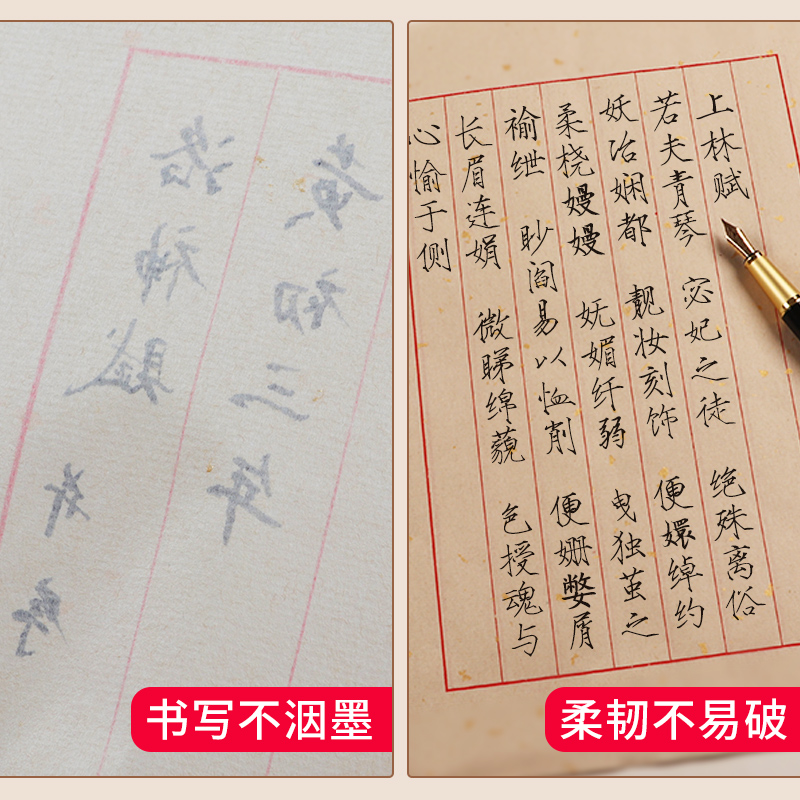 洛神赋 并序
黄初三年
书写不洇墨
上林赋
若夫青琴 宓妃之徒 绝殊离俗
妖冶娴都 靓妆刻饰 便嬛绰约
柔桡嫚嫚 妩媚纤弱 曳独茧之
褕绁 眇阎易以恤削 便姗嫳屑
长眉连娟 微睇绵藐 色授魂与
心愉于侧
柔韧不易破